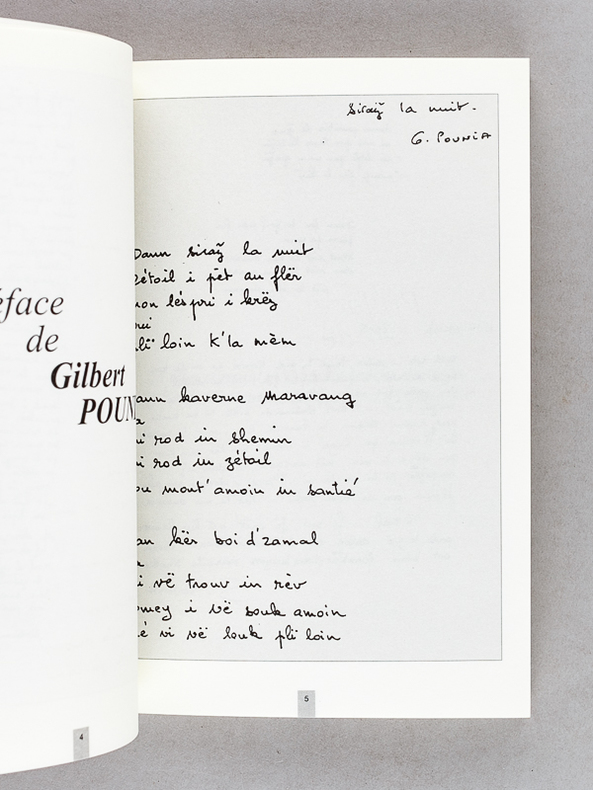 éface
de
Gilbert
POUN
4
Siraÿ la nuit.
G. POUNIA
Dann siraÿ la nuit
zétoil i pèt an flër
mon léspri i krëz
loin k'la mèm
kaverne Maravang
rod in shemin
rod in zétoil
mont'amoin in santié
kër boi d'zamal
i vë trouv in rèv
i vë souk amoin
vi vë louk plï loin
5